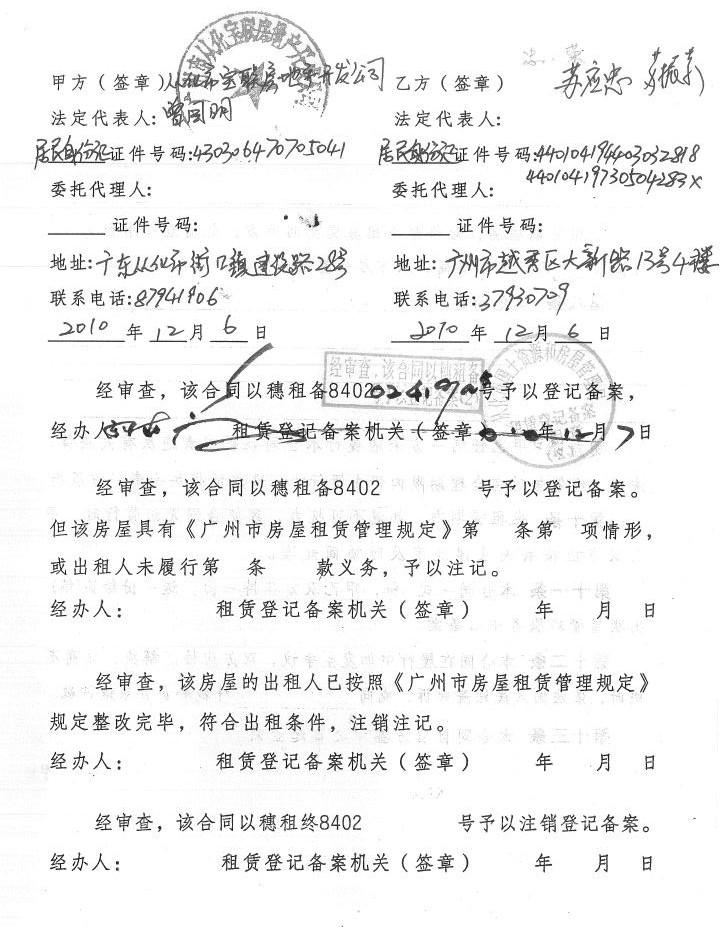 甲方（签章）从化市宝联房地产开发公司
法定代表人：曾国明
居民身份证证件号码：430306470705041
委托代理人：
证件号码：
地址：广东从化市街口镇建设路28号
联系电话：87941906
2010 年 12 月 6 日
乙方（签章） 苏应忠 苏振
法定代表人：
居民身份证证件号码：440104194403032818
44010419730504283X
委托代理人：
证件号码：
地址：广州市越秀区大新路13号4楼
联系电话：37930709
2010 年 12 月 6 日
经审查，该合同以穗租备
经审查，该合同以穗租备8402 号予以登记备案，
经办人： 租赁登记备案机关（签章） 年12月7日
经审查，该合同以穗租备8402 号予以登记备案。
但该房屋具有《广州市房屋租赁管理规定》第 条第 项情形，
或出租人未履行第 条 款义务，予以注记。
经办人： 租赁登记备案机关（签章） 年 月 日
经审查，该房屋的出租人已按照《广州市房屋租赁管理规定》
规定整改完毕，符合出租条件，注销注记。
经办人： 租赁登记备案机关（签章） 年 月 日
经审查，该合同以穗租终8402 号予以注销登记备案。
经办人： 租赁登记备案机关（签章） 年 月 日